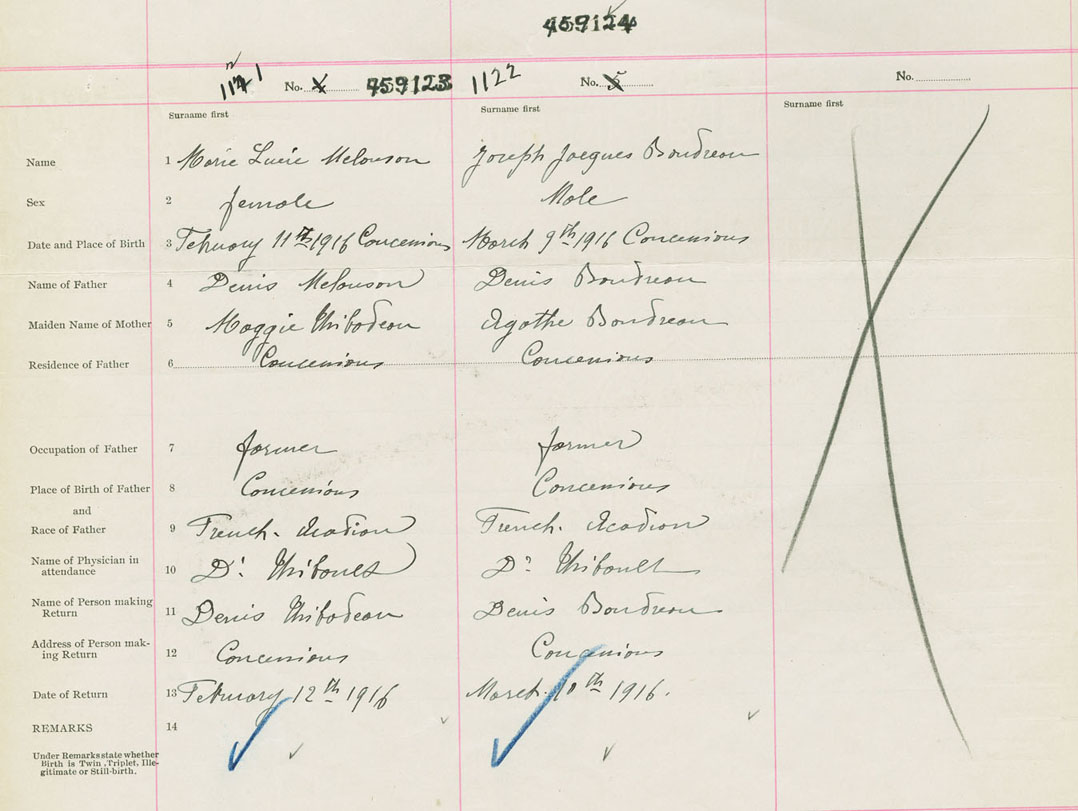 459124
1121 No. 4 459123 1122 No. 5 No.
Surname first Surname first Surname first
Name 1 Marie Lucie Melonson Joseph Jacques Boudreau
Sex 2 female Male
Date and Place of Birth 3 February 11th 1916 Concenious March 9th 1916 Concenious
Name of Father 4 Denis Melonson Denis Boudreau
Maiden Name of Mother 5 Maggie Thibodeau Agathe Boudreau
Residence of Father 6 Concenious Concenious
Occupation of Father 7 farmer farmer
Place of Birth of Father 8 Concenious Concenious
and
Race of Father 9 French. Acadian French. Acadian
Name of Physician in
attendance 10 Dr. Thibault Dr. Thibault
Name of Person making
Return 11 Denis Thibodeau Denis Boudreau
Address of Person mak-
ing Return 12 Concenious Concenious
Date of Return 13 February 12th 1916 March. 10th 1916.
REMARKS 14
Under Remarks state whether
Birth is Twin, Triplet, Ille-
gitimate or Still-birth.